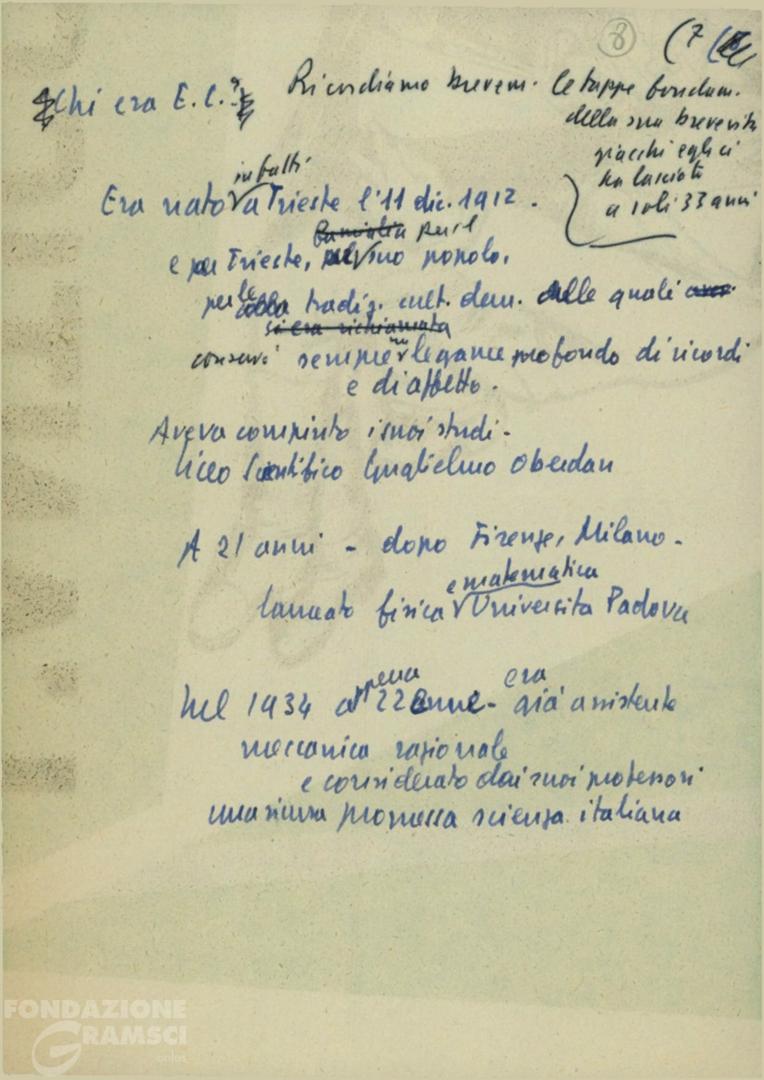 8 (7
Chi era E. C.? Ricordiamo brevem. le tappe fondam.
della sua breve vita
giacchè egli ci
ha lasciati
a soli 33 anni
infatti
Era nato a Trieste l'11 dic. 1912.
famiglia per il
e per Trieste, suo popolo,
per le tradiz. cult. dem. delle quali
si era richiamata
conservò sempre un legame profondo di ricordi
e di affetto.
Aveva compiuto i suoi studi -
Liceo Scientifico Guglielmo Oberdan
A 21 anni - dopo Firenze, Milano -
e matematica
laureato fisica Università Padova
Nel 1934 appena 22enne - era già assistente
meccanica razionale
e considerato dai suoi professori
una sicura promessa scienza italiana
FONDAZIONE
GRAMSCI
onlus